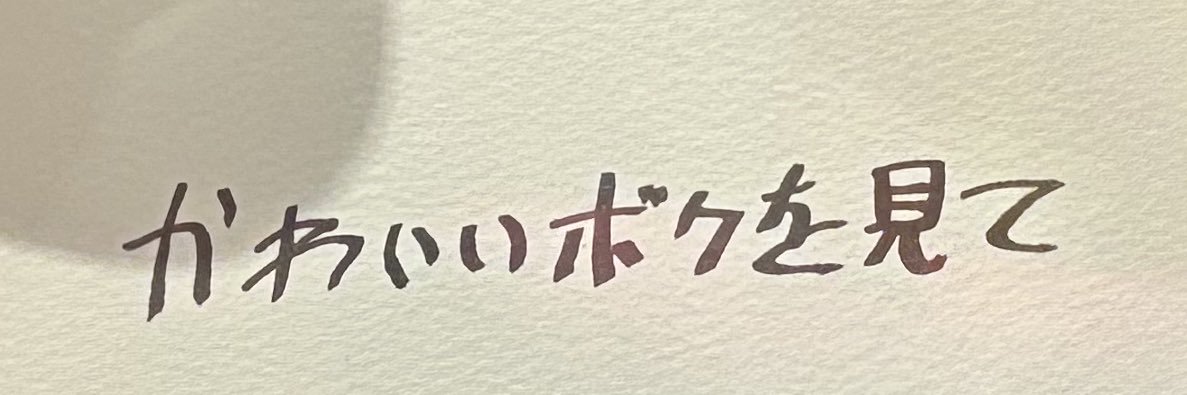 かわいいボクを見て